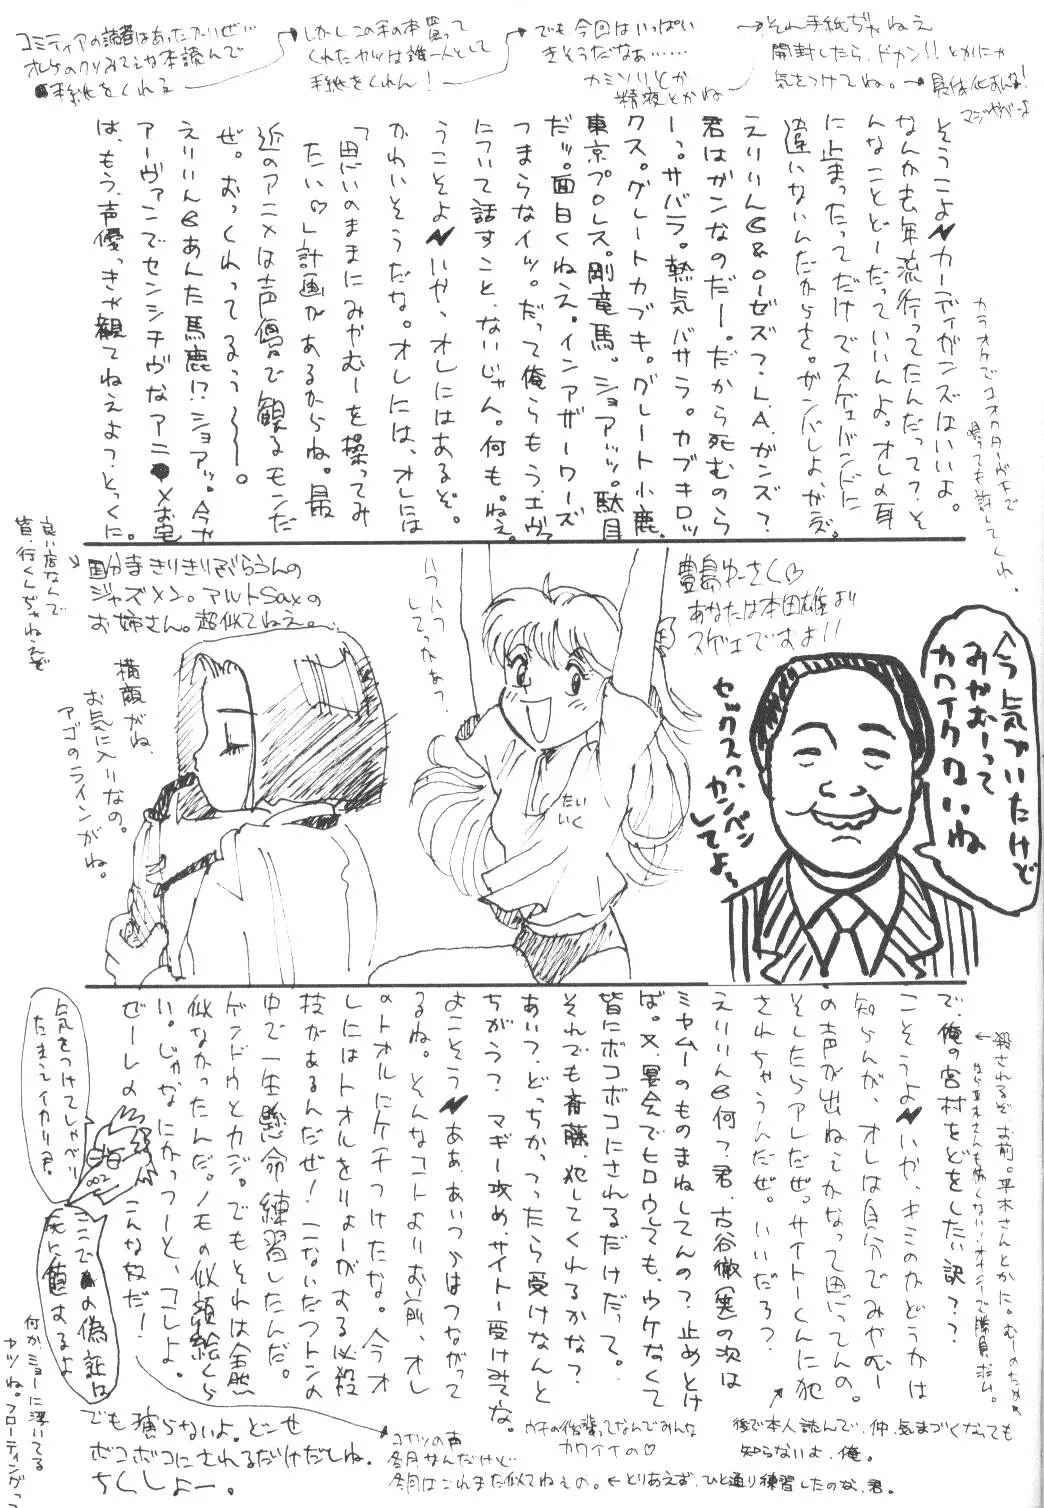 コミティアの読者はあったでいぜ…
オレケのクソみてえな本読んで
手紙をくれる
しかしこの手の本買って
くれたヤツは誰一人として
手紙をくれん！
でも今回はいっぱい
きそうだなぁ……
カミソリとか
精液とかね
それ手紙ぢゃねえ
開封したら、ドカン!!とかにゃ
気をつけてね。→具体化すんな!
マジやべーよ
そうこよ カーディガンズはいいよ。
なんか去年流行ってたんだって？そ
んなことどーだっていいんよ。オレの耳
に止まったってだけでスゲェバンドに
違いないんだからさ。ガンバしよ、かぜ。
えりりん&ローゼズ？L.A.ガンズ？
君はガンなのだー。だから死むのら
ーっ。サバラ。熱気バサラ。カブキロッ
クス。グレートカブキ。グレート小鹿。
東京プロレス。剛竜馬。ショアッッ。駄目
だッ。面白くねえ。インアザーワーズ
つまらなイッ。だって俺らもう、エヴァ
について話すこと、ないじゃん。何も。ねぇ。
うこそよ いや、オレにはあるぞ。
かわいそうだな。オレには、オレには
「思いのままにみやむーを操ってみ
たい♡」計画があるからね。最
近のアニメは声優で観るモンだ
ぜ。おっくれってるぅぅ〜〜。
えりりんあんた馬鹿!?ショアッ。今か
アーヴァンでセンシチヴなアニメお宅
は、もう、声優っきゃ観てねえよっ、とっくに。
カラオケでコオロギ
唄っても許してくれ。
良い店なんで
皆、行くんぢゃねえぞ
国分寺きりきりぶらうんの
ジャズメン。アルトSaxの
お姉さん。超似てねえ。
横顔がね、
お気に入りなの。
アゴのラインがね。
いつハフ
してっかぁっ
たいいく
豊島ゆーさく♡
あなたは本田雄より
スゲェですよ!!
セックスっ、カンペン
してよっ
今気づいたけど
みやむーって
カワイクないね
で、俺の宮村をどをしたい訳？？
こそうよ いや、キミのかどうかは
知らんが、オレは自分でみやむー
の声が出ねえかなって思ってんの。
そしたらアレだぜ。サイトーくんに犯
されちゃうんだぜ。いいだろ？
えりりん何？君、古谷徹(裏)の次は
ミヤムーのものまねしてんの？止めとけ
ば。又、宴会でヒロウしても、ウケなくて
皆にボコボコにされるだけだって。
それでも斎藤、犯してくれるかな？
あい？どっちかってったら受けなんと
ちがう？マギー攻め、サイトー受けみてな。
よこそう ああ、あいつらはつながって
るね。そんなコトよりお前、オレ
のトオルにケチつけたな。今うオ
レにはトオルをりょーがする必殺
技があるんだぜ！二ないだフトンの
中で一生懸命練習したんだ。
ゲンドウとカジ。でもそれは全然
似なかったんだ。ノモの似顔絵くら
い。じゃなにかっつーと、コレしよ。
ぜーレのこんな奴だー！
気をつけてしゃべり
たまえイカリ君。
002
ここでの偽証は
死に値するよ
何かミョーに浮いてる
ヤツね。フローティングっ
でも演らないよ。どーせ
ボコボコにされるだけだしね。
ちくしょー。
コイツの声
各月サんだけど
各月はこれまた似てねえの。←とりあえず、ひと通り練習したのな、君。
ウチの後輩ってなんでみんな
カワイイの♡
後で本人読んで、仲、気まづくなっても
知らないよ、俺。
殺されるぞ、お前。平木さんとかに。